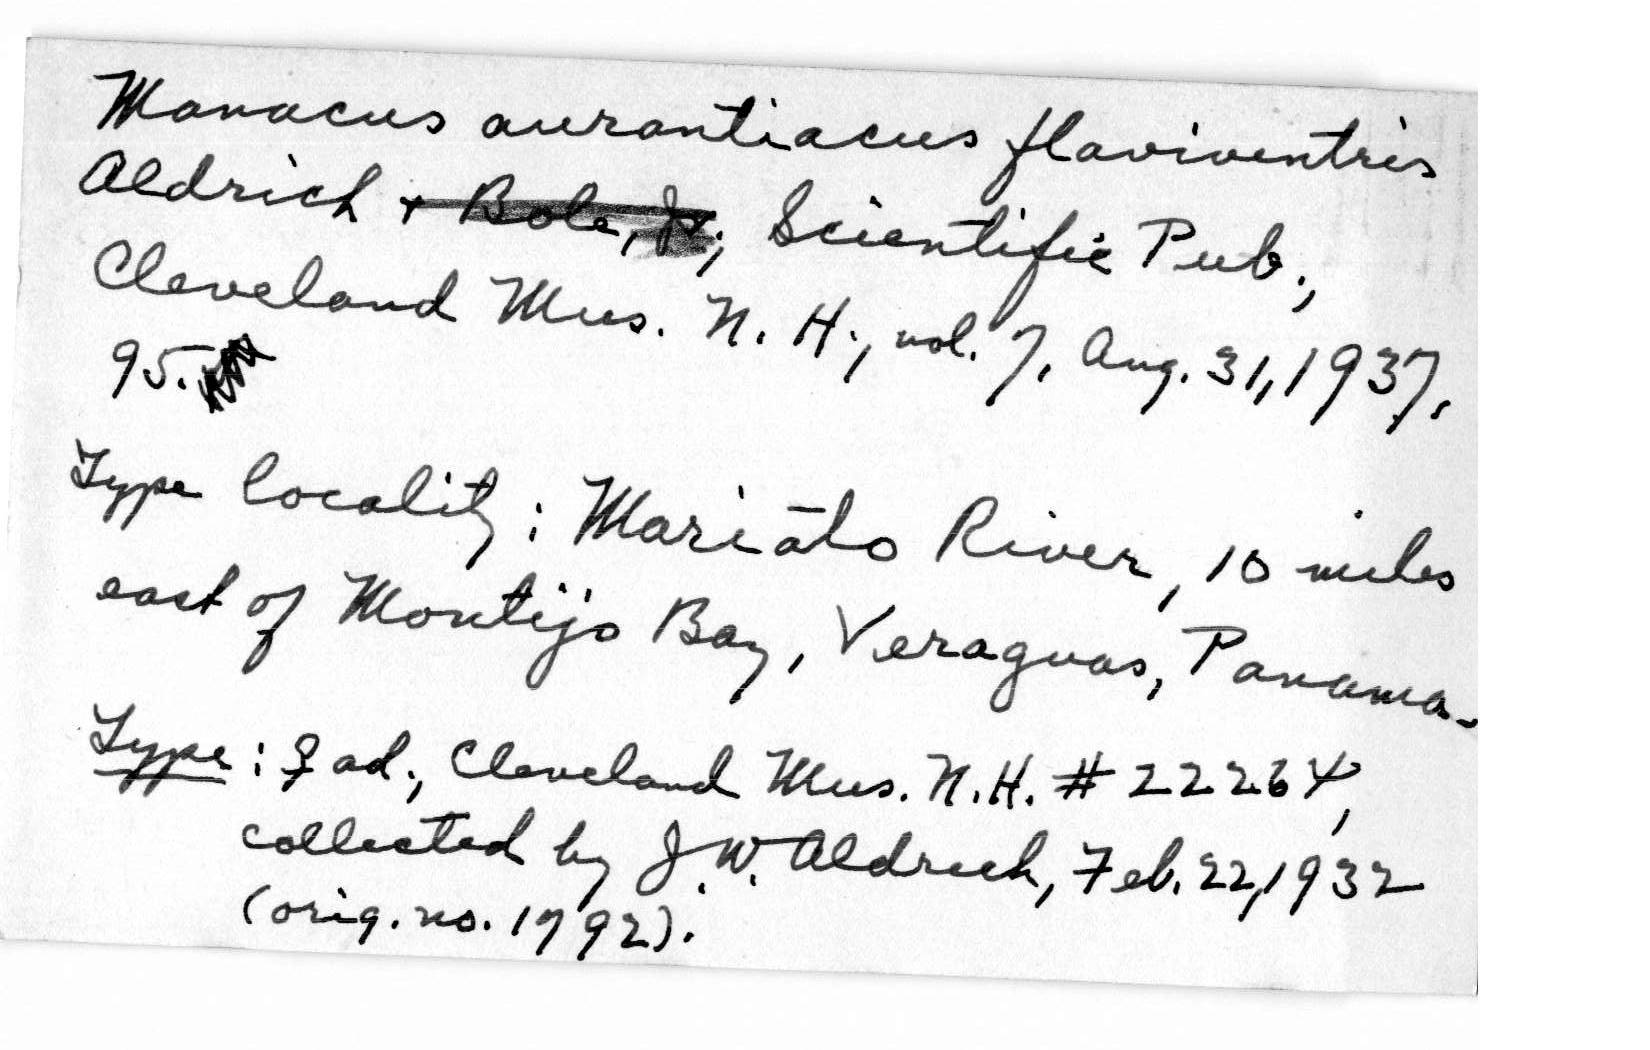 Manacus aurantiacus flaviventris
Aldrich + Bole, Jr., Scientific Pub.,
Cleveland Mus. N. H., vol. 7, Aug. 31, 1937,
95.
Type locality: Mariāto River, 10 miles
east of Montijo Bay, Veraguas, Panama.
Type: ♀ ad., Cleveland Mus. N.H. # 22264,
collected by J.W. Aldrich, Feb. 22, 1932
(orig. no. 1792).